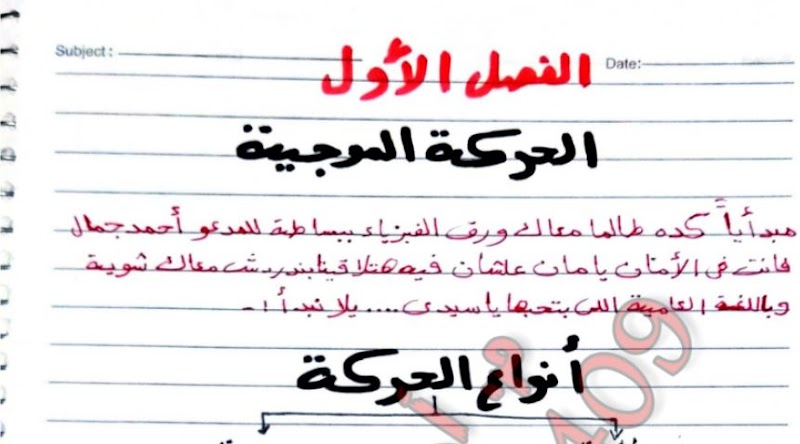 Subject: Date:
الفصل الأول
الحركة الموجية
مبدأياً كده طالما معاك ورق الفيزياء ببساطة للمدعو أحمد جمال
فانت فى الأمان يا مان علشان فيه هتلاقينا بندردش معاك شوية
وباللغة العامية اللى بتحبها يا سيدى .... يلا نبدأ !-
أنواع الحركة
م أ
409